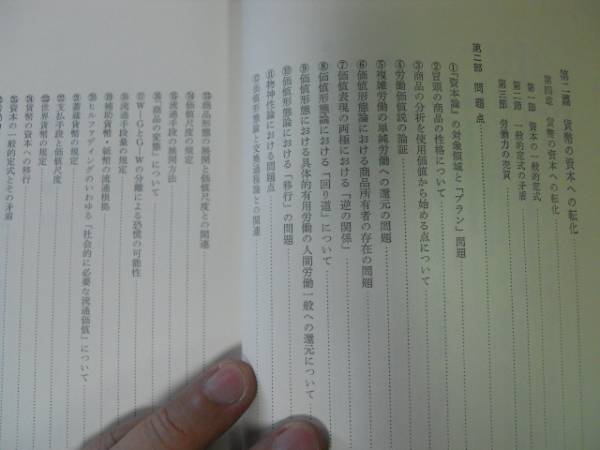 第二篇 貨幣の資本への転化
第四章 貨幣の資本への転化
第一節 資本の一般的定式
第二節 一般的定式の矛盾
第三節 労働力の売買
第二部 問題点
①『資本論』の対象領域と「プラン」問題
②冒頭の商品の性格について
③商品の分析を使用価値から始める点について
④労働価値説の論証
⑤複雑労働の単純労働への還元の問題
⑥価値形態論における商品所有者の存在の問題
⑦価値表現の両極における「逆の関係」
⑧価値形態論における「回り道」について
⑨価値形態における具体的有用労働の人間労働一般への還元について
⑩価値形態論における「移行」の問題
⑪物神性論における問題点
⑫価値形態論と交換過程論との関連
⑬商品形態の発展と価値尺度との関連
⑭価値尺度の規定
⑮流通手段の展開方法
⑯「商品の変態」について
⑰W―GとG―Wの分離による恐慌の可能性
⑱流通手段量の規定
⑲補助貨幣・紙幣の流通根拠
⑳ヒルファディングのいわゆる「社会的に必要な流通価値」について
㉑蓄蔵貨幣の規定
㉒支払手段と価値尺度
㉓世界貨幣の規定
㉔貨幣の資本への移行
㉕資本の一般的定式とその矛盾